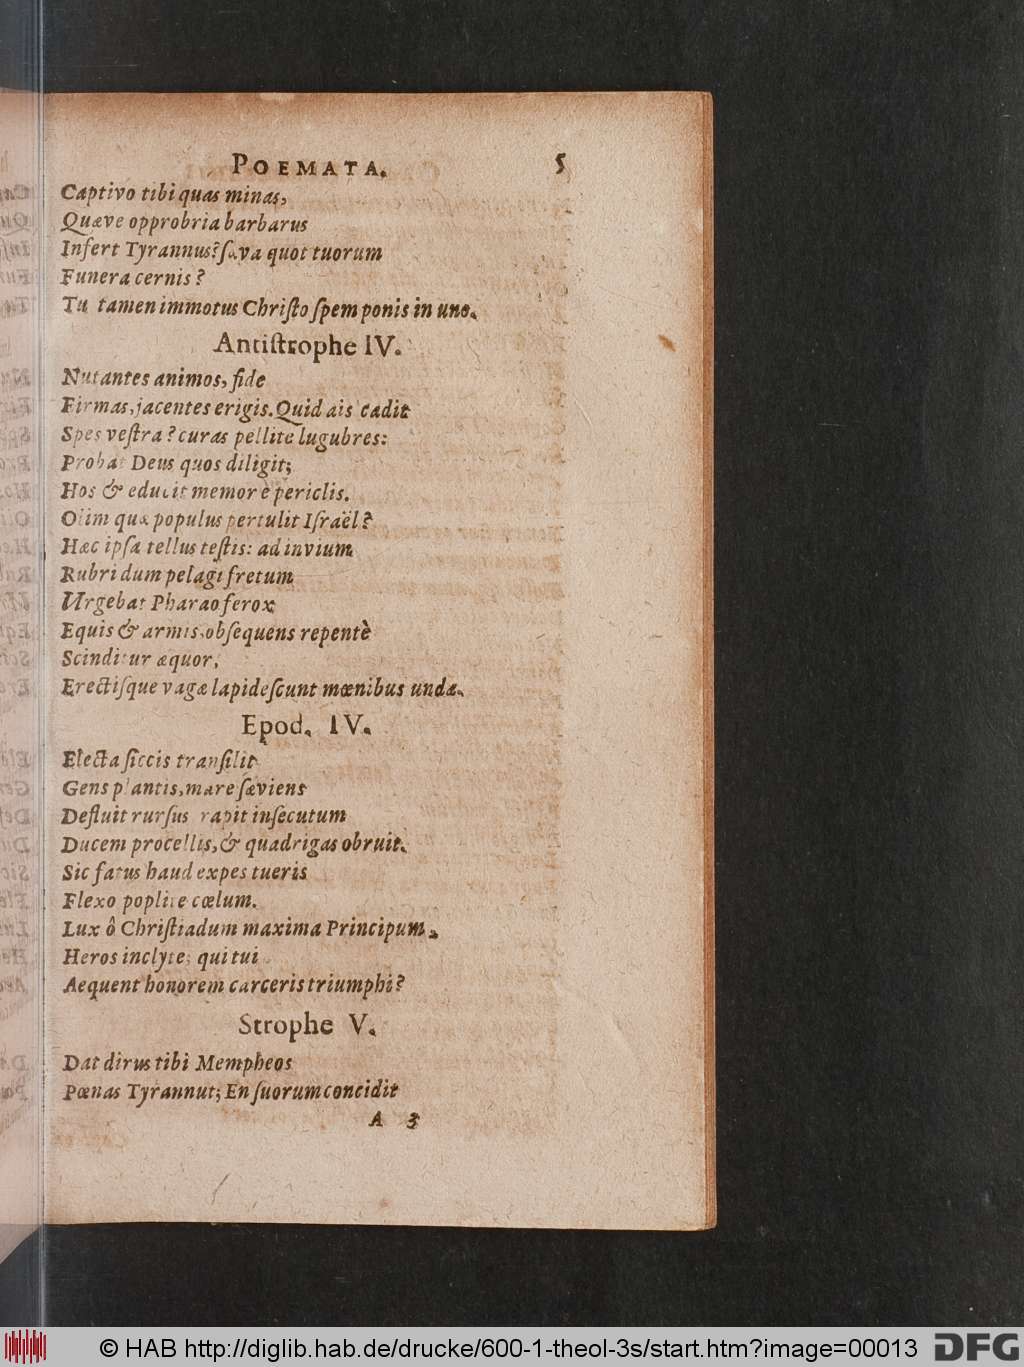 POEMATA. 5
Captivo tibi quas minas,
Quæve opprobria barbarus
Infert Tyrannus? sæva quot tuorum
Funera cernis?
Tu tamen immotus Chriſto ſpem ponis in uno.
Antiſtrophe IV.
Nutantes animos, fide
Firmas, jacentes erigis. Quid ais cadit
Spes veſtra? curas pellite lugubres:
Probat Deus quos diligit;
Hos & educit memor è periclis.
Olim quæ populus pertulit Iſraël?
Hæc ipſa tellus teſtis: ad invium
Rubri dum pelagi fretum
Urgebat Pharao ferox
Equis & armis, obſequens repentè
Scinditur æquor,
Erectiſque vagæ lapideſcunt mœnibus undæ.
Epod. IV.
Electa ſiccis tranſilit
Gens plantis, mare ſæviens
Defluit rurſus rapit inſecutum
Ducem procellis, & quadrigas obruit.
Sic fatus haud expes tueris
Flexo poplite cœlum.
Lux ô Chriſtiadum maxima Principum,
Heros inclyte; qui tui
Aequent honorem carceris triumphi?
Strophe V.
Dat dirus tibi Mempheos
Pœnas Tyrannut; En ſuorum concidit
A 3
© HAB http://diglib.hab.de/drucke/600-1-theol-3s/start.htm?image=00013 DFG